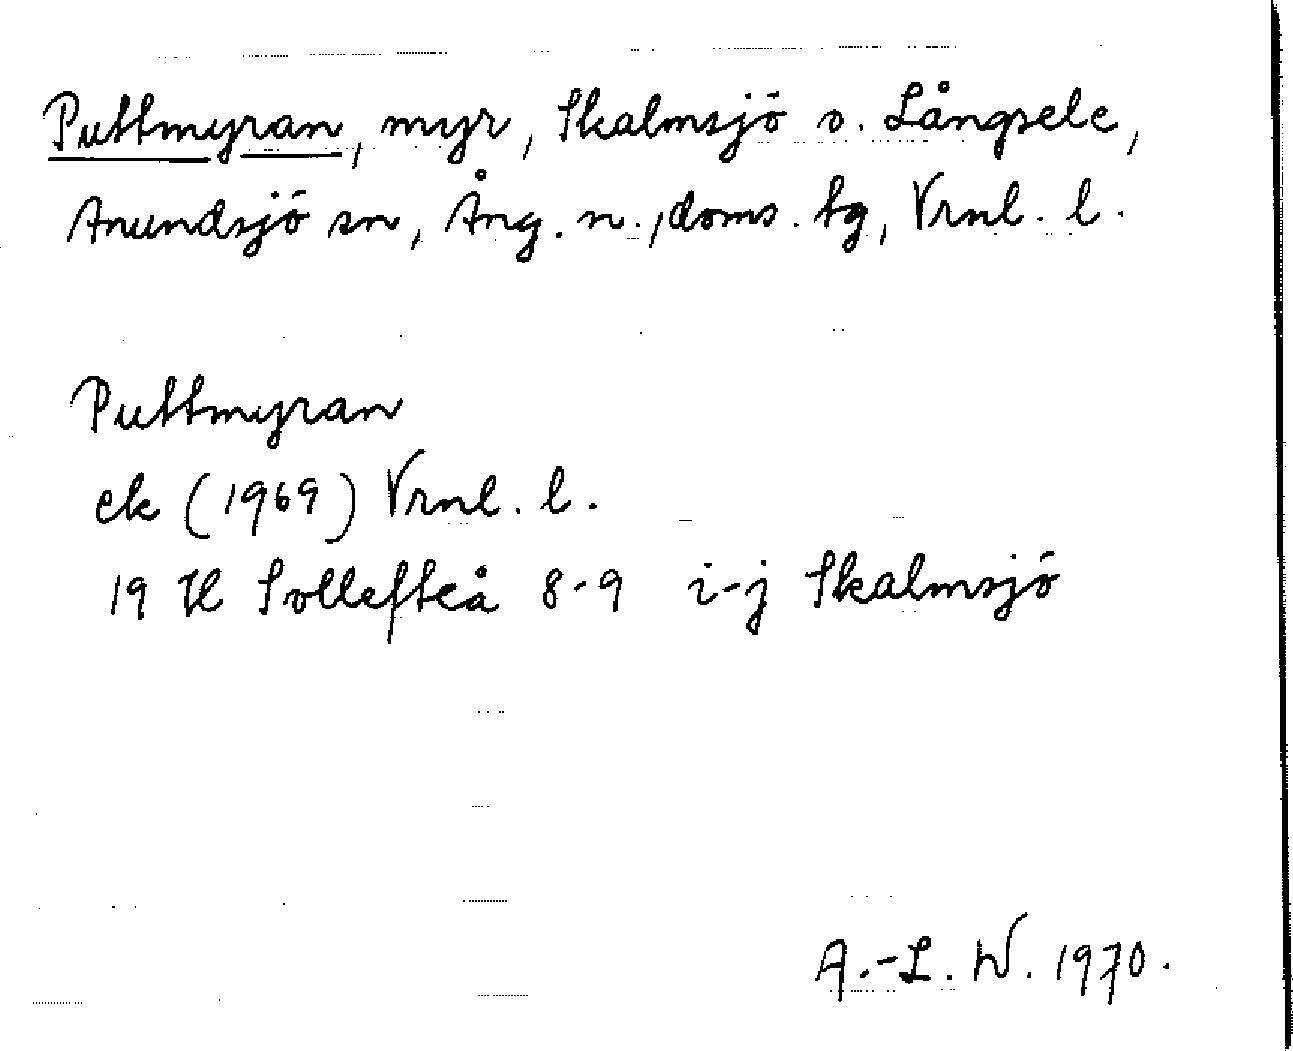 Puttmyran, myr, Skalmsjö o. Långsele,
Anundsjö sn, Ång. n., doms. tg, Vrnl. l.
Puttmyran
ek (1969) Vrnl. l.
19 H Sollefteå 8-9 i-j Skalmsjö
A.-L. W. 1970.